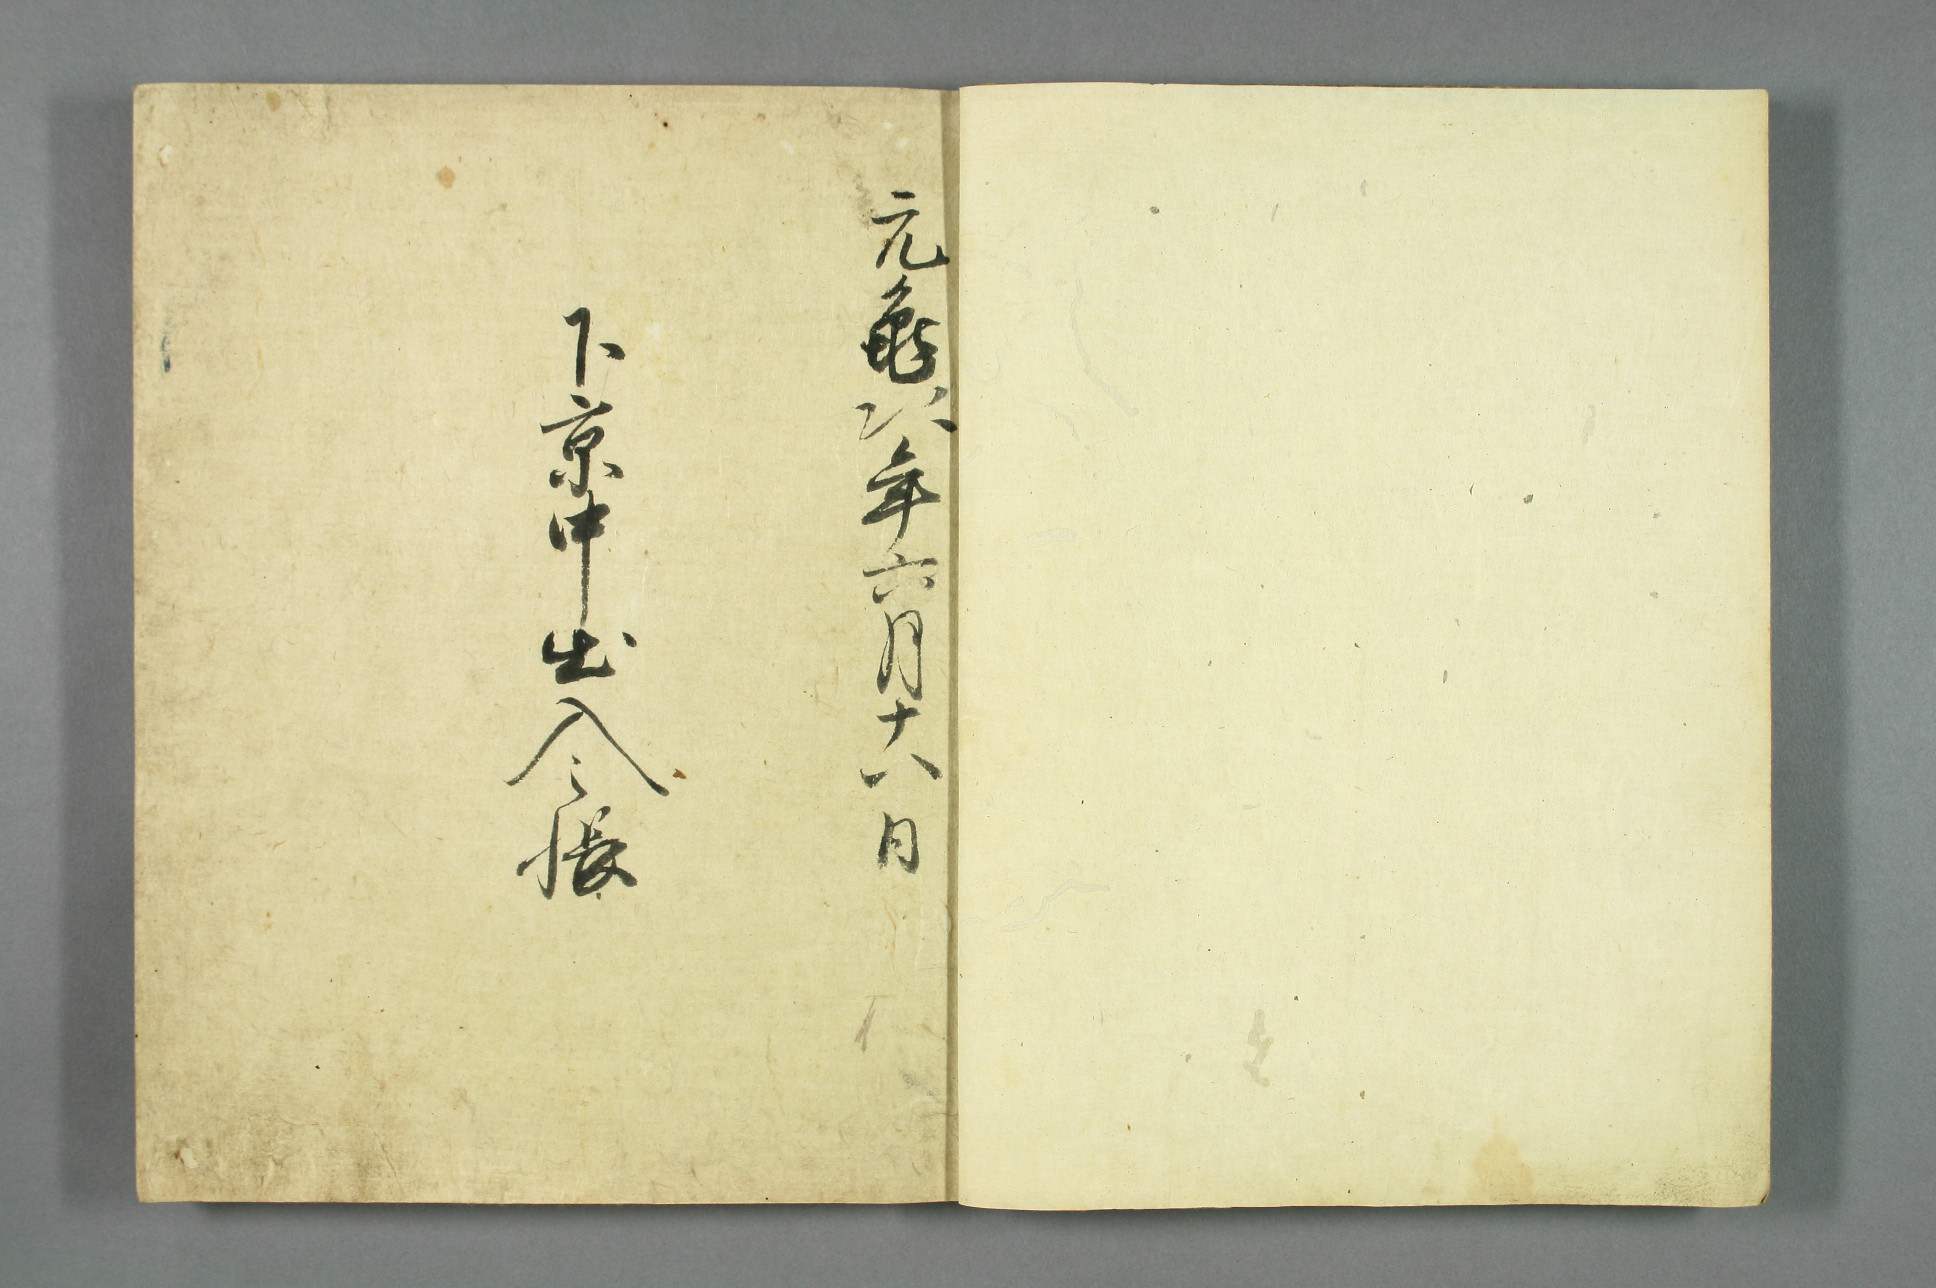 元亀四年六月十八日
下京中出入之帳